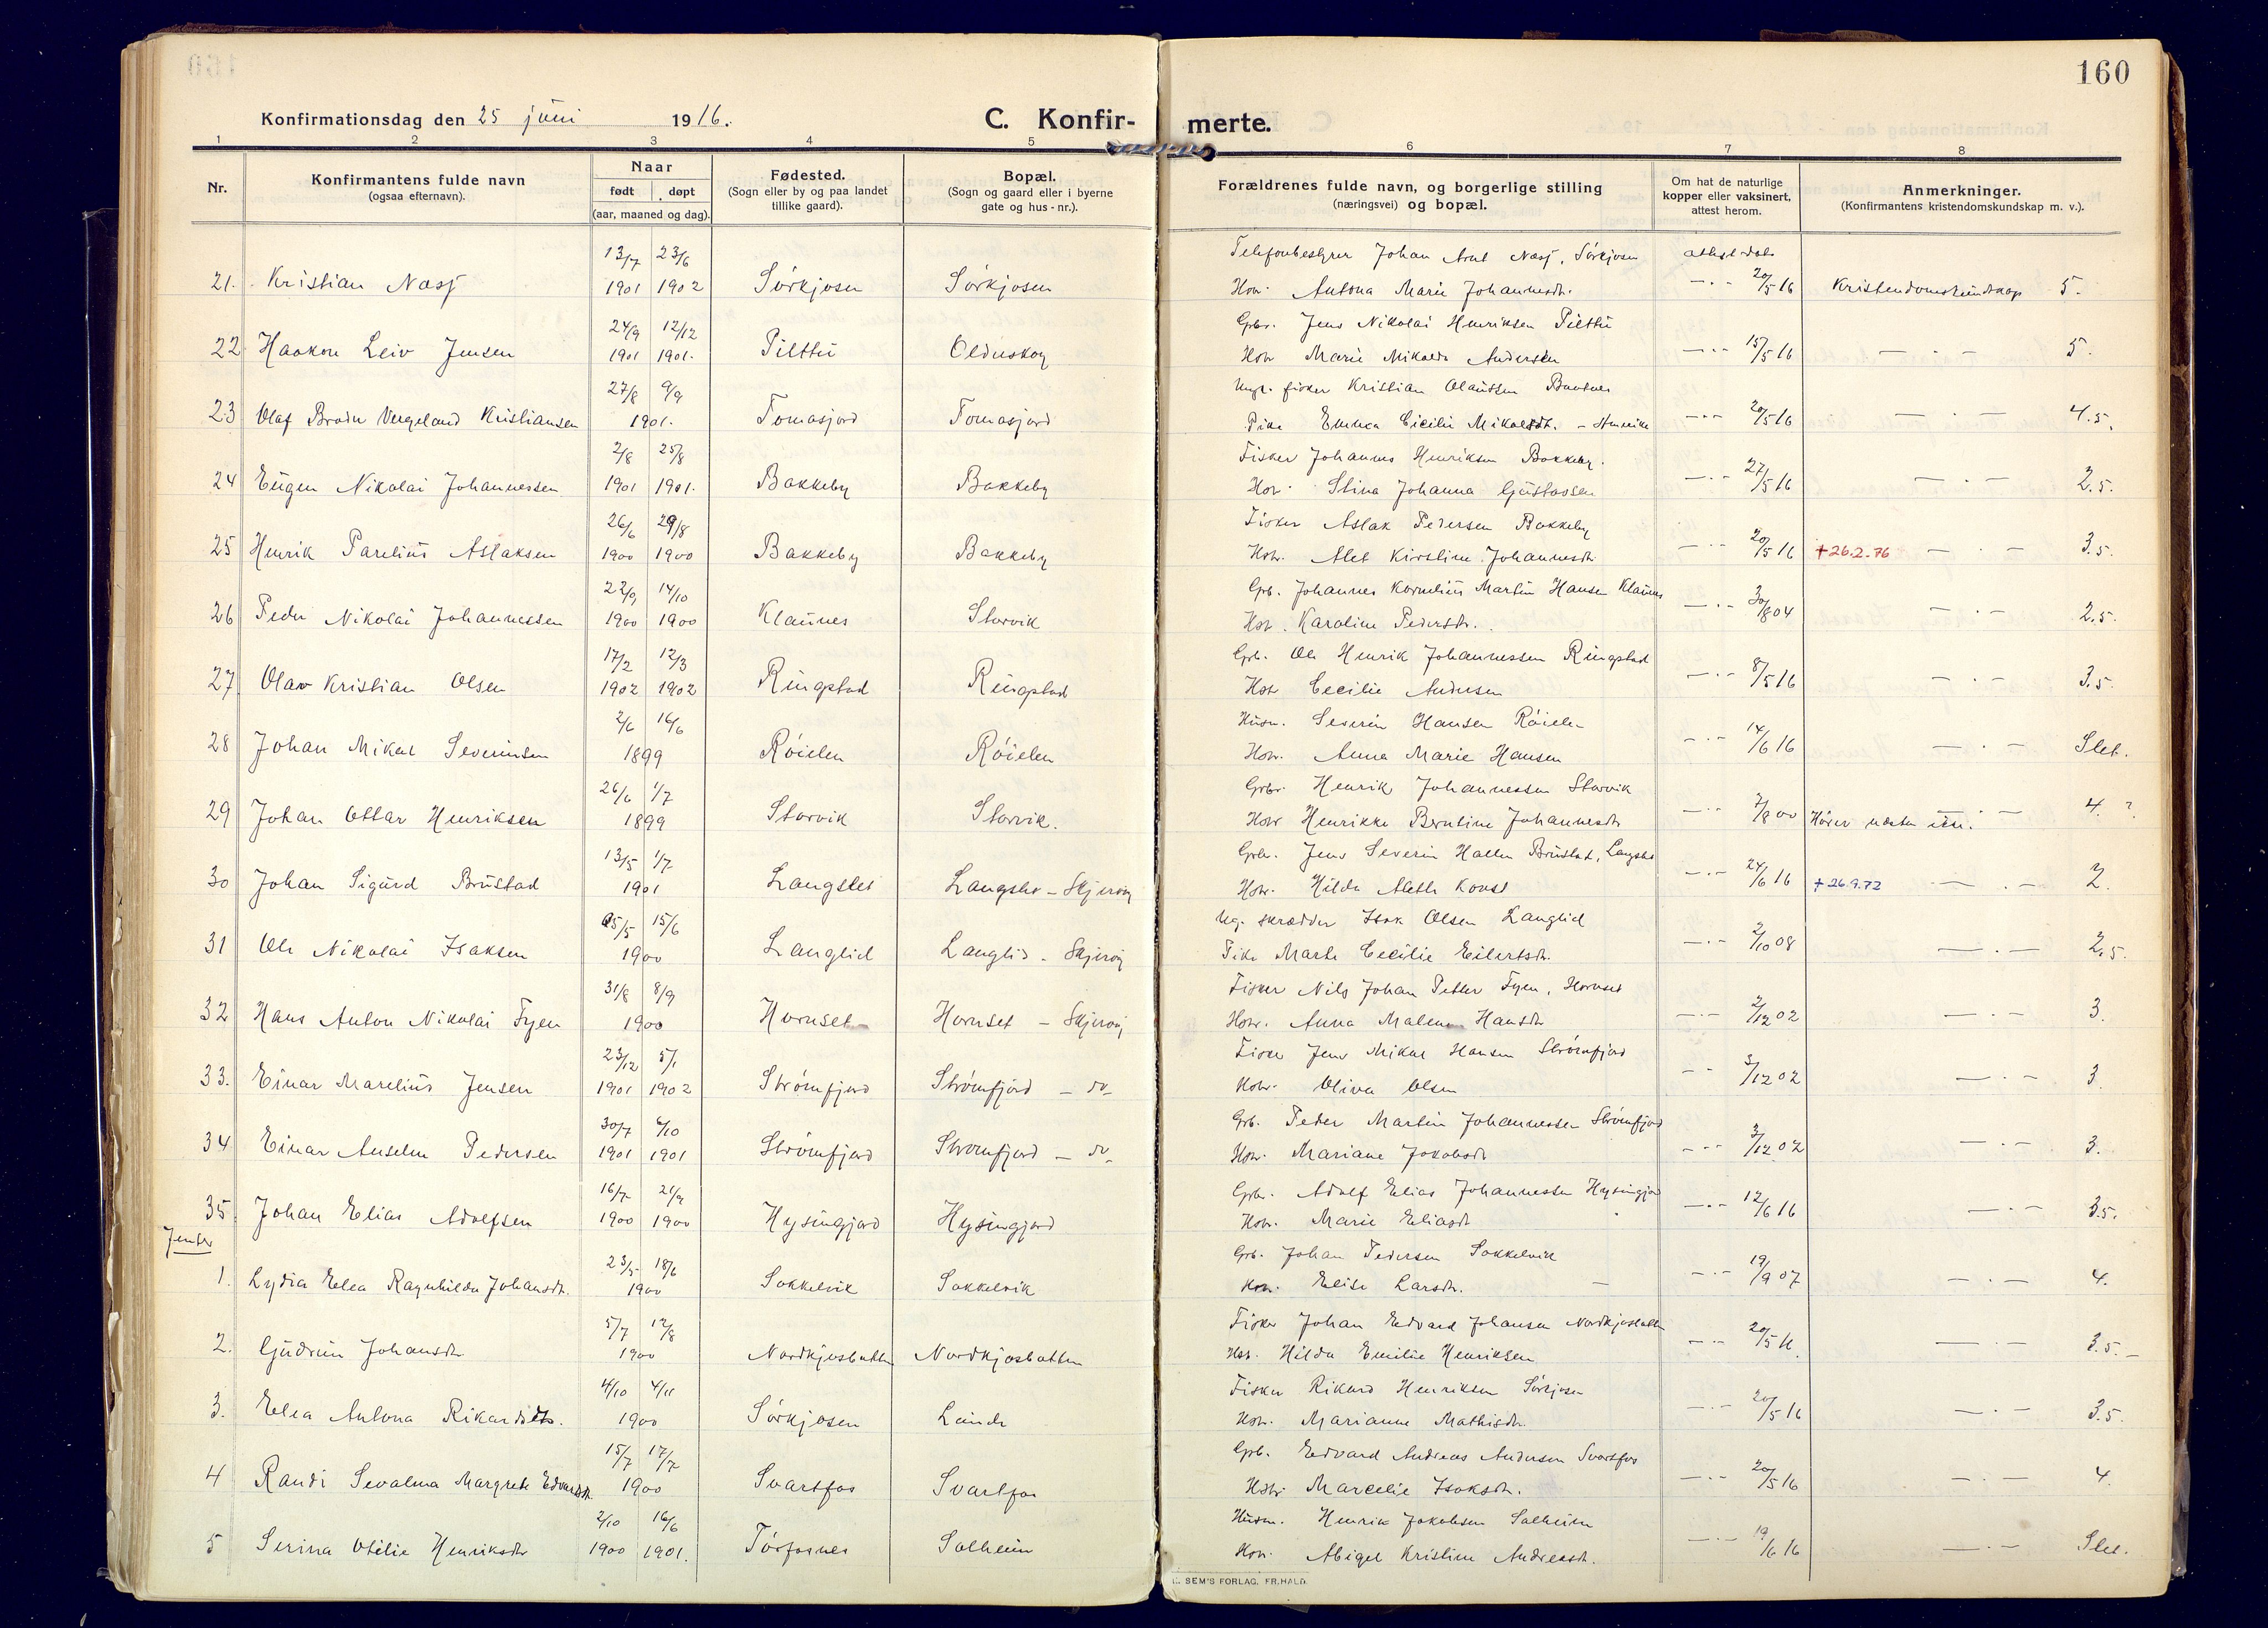 160
Konfirmationsdag den 25 juni 1916.
C. Konfir-
merte.
1 2 3 4 5 6 7 8
Nr.
Konfirmantens fulde navn
(ogsaa efternavn).
Naar
født døpt
(aar, maaned og dag).
Fødested.
(Sogn eller by og paa landet
tillike gaard).
Bopæl.
(Sogn og gaard eller i byerne
gate og hus-nr.).
Forældrenes fulde navn, og borgerlige stilling
(næringsvei) og bopæl.
Om hat de naturlige
kopper eller vaksinert,
attest herom.
Anmerkninger.
(Konfirmantens kristendomskundskap m. v.).
13/7 23/6 Telefonbestyrer Johan Arnt Næsj, Sørkjosen
21. Kristian Næsj 1901 1902 Sørkjosen Sørkjosen Hstr. Antona Marie Johannesdtr. —·— 20/5 16 Kristendomskundskap 5.
24/9 12/12 Grbr. Jens Nikolai Henriksen Pilttü
22 Haakon Leiv Jensen 1901 1901. Pilttü Oldnskog Hstr Marie Mikalda Andersen —·— 15/5 16 —·— 5.
27/8 9/9 Ungk. fisker Kristian Olaussen
23 Olaf Broder Vergeland Kristiansen 1901. Tomasjord Tomasjord Pike Emma Cicilie Mikalsdtr. —·— 20/5 16 —·— 4.5.
2/8 25/8 Fisker Johannes Henriksen Bakkeby.
24 Eugen Nikolai Johannessen 1901 1901. Bakkeby Bakkeby Hstr. Stina Johanna Gustavsen —·— 27/5 16 —·— 2.5.
26/6 29/8 Fisker Aslak Pedersen Bakkeby
25 Henrik Parelius Aslaksen 1900 1900 Bakkeby Bakkeby Hstr. Alet Kirstine Johannesdtr —·— 20/5 16 +26.2.76 —·— 3.5.
22/9 14/10 Grb. Johannes Kornelius Martin Hansen Klaunes
26 Peder Nikolai Johannessen 1900 1900 Klaunes Storvik Hstr. Karoline Pedersdtr. —·— 30/8 04 —·— 2.5.
17/2 12/3 Grb. Ole Henrik Johannessen Ringstad
27 Olav Kristian Olsen 1902 1902 Ringstad Ringstad Hstr Cecilie Andersen —·— 8/5 16 —·— 3.5.
2/6 16/6 Husm. Severin Hansen Røielen
28 Johan Mikal Severinsen 1899 Røielen Røielen Hstr. Anna Marie Hansen —·— 14/6 16 —·— Slet.
26/6 1/7 Grbr. Henrik Johannessen Storvik
29 Johan Ottar Henriksen 1899 Storvik Storvik. Hstr Henrikke Berntine Johannesdtr —·— 7/8 00 Hører næsten —·— 4. ?
13/5 1/7 Grbr. Jens Severin Hallen Brustad, Langslet
30 Johan Sigurd Brustad 1901 Langslet Langslet - Skjervøy Hstr. Hilda Aleth —·— 24/6 16 +26.9.72 —·— 2.
25/5 15/6 Ug. skrædder Isak Olsen Langlid
31 Ole Nikolai Isaksen 1900 Langlid Langlid - Skjervøy Pike Marte Cecilie Eilertsdtr. —·— 2/10 08 —·— 2.5.
31/8 8/9 Fisker Nils Johan Petter Fyen, Hornset
32 Hans Anton Nikolai Fyen 1900 Hornset Hornset - Skjervøy Hstr. Anna Malene Hansdtr —·— 2/12 02 —·— 3.
23/12 5/1 Fisker Jens Mikal Hansen Strømfjord
33. Einar Marelius Jensen 1901 1902 Strømfjord Strømfjord - do- Hstr. Oliva Olsen —·— 3/12 02 —·— 3.
30/7 6/10 Grb. Peder Martin Johannessen Strømfjord
34 Einar Anselm Pedersen 1901 1901 Strømfjord Strømfjord - do- Hstr. Mariane Jakobsdtr —·— 3/12 02 —·— 3.
16/7 21/9 Grbr. Adolf Elias Johannessen Hysingjord
35. Johan Elias Adolfsen 1900 1900 Hysingjord Hysingjord Hstr. Marie Eliasdtr —·— 12/6 16 —·— 3.5.
Jenter
23/5 18/6 Grb. Johan Pedersen Sokkelvik
1. Lydia Elea Ragnhilda Johansdtr. 1900 Sokkelvik Sokkelvik Hstr. Elise Larsdtr. —·— 19/9 07 —·— 4.
5/7 12/8 Fisker Johan Edvard Johansen Nordkjosbotten
2. Gudrun Johansdtr 1900 Nordkjosbotten Nordkjosbotten Hstr. Hilda Emilie Henriksen —·— 20/5 16. —·— 3.5.
4/10 4/11 Fisker Rikard Henriksen Sørkjosen
3. Elea Antona Rikardsdtr. 1900 Sørkjosen Lunde Hstr. Marianne Mathisdtr. —·— 20/5 16 —·— 3.5.
15/7 17/7 Grb. Edvard Andreas Andersen Svartfos
4 Randi Sevalma Margrete Edvardsdtr. 1900 Svartfos Svartfos Hstr Marcelie Isaksdtr. —·— 20/5 16 —·— 4.
2/10 16/6 Husm. Henrik Jakobsen Solheim
5 Serina Otilie Henriksdtr 1900 1901. Solheim Hstr. Abigel Kristine Andreasdtr. —·— 19/6 16 —·— Slet.
SEM'S FORLAG, FR.HALD.